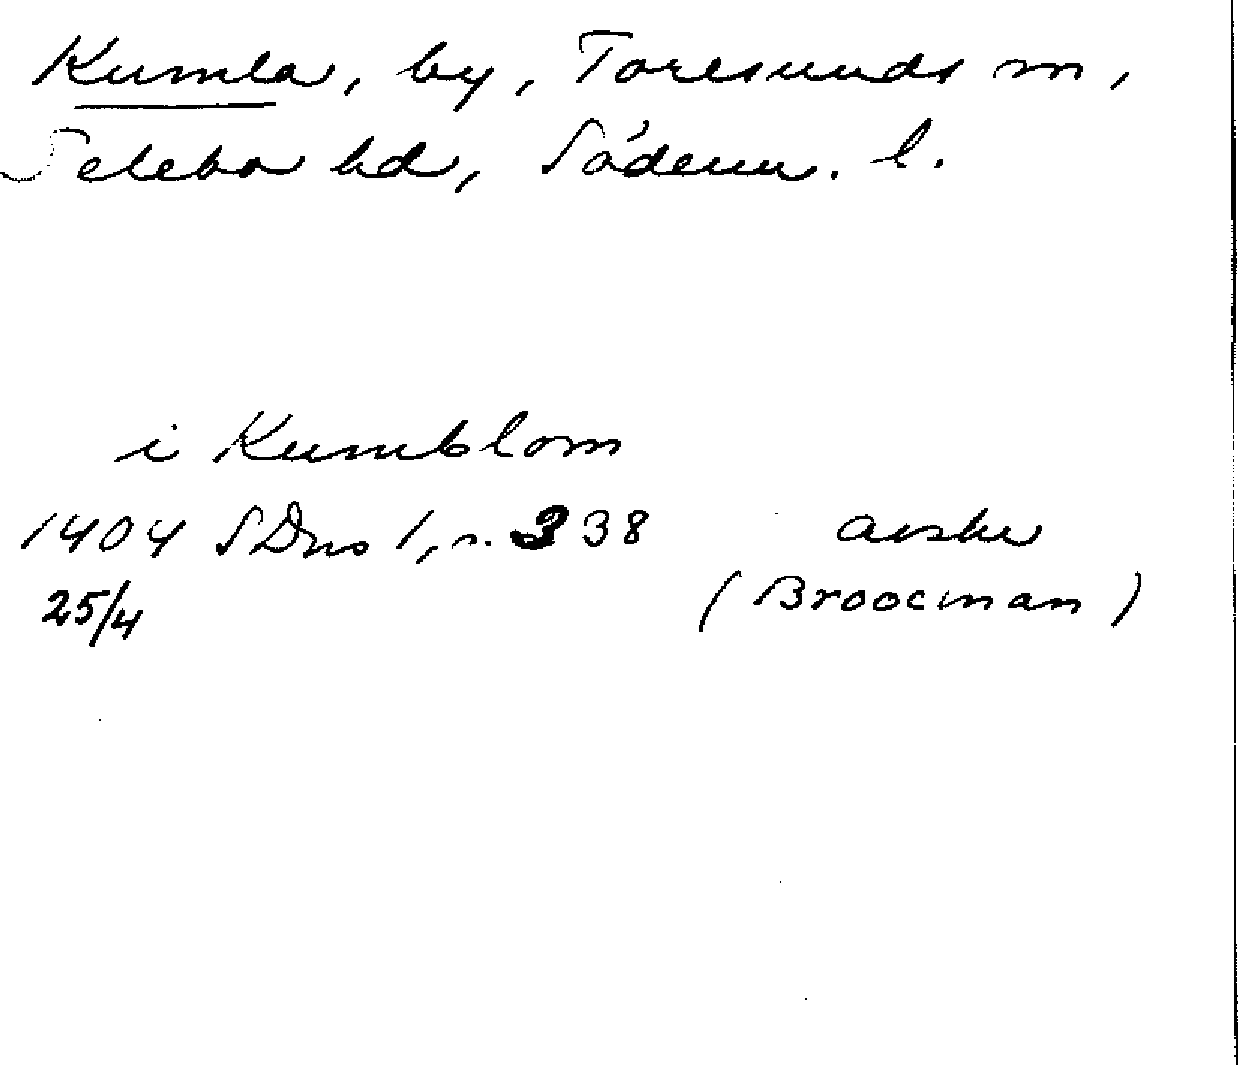 Kumla, by, Toresunds sn,
Selebo hd, Söderm. l.
i Kumblom
1404 SDns 1, s. 338 avskr
25/4 (Broocman)